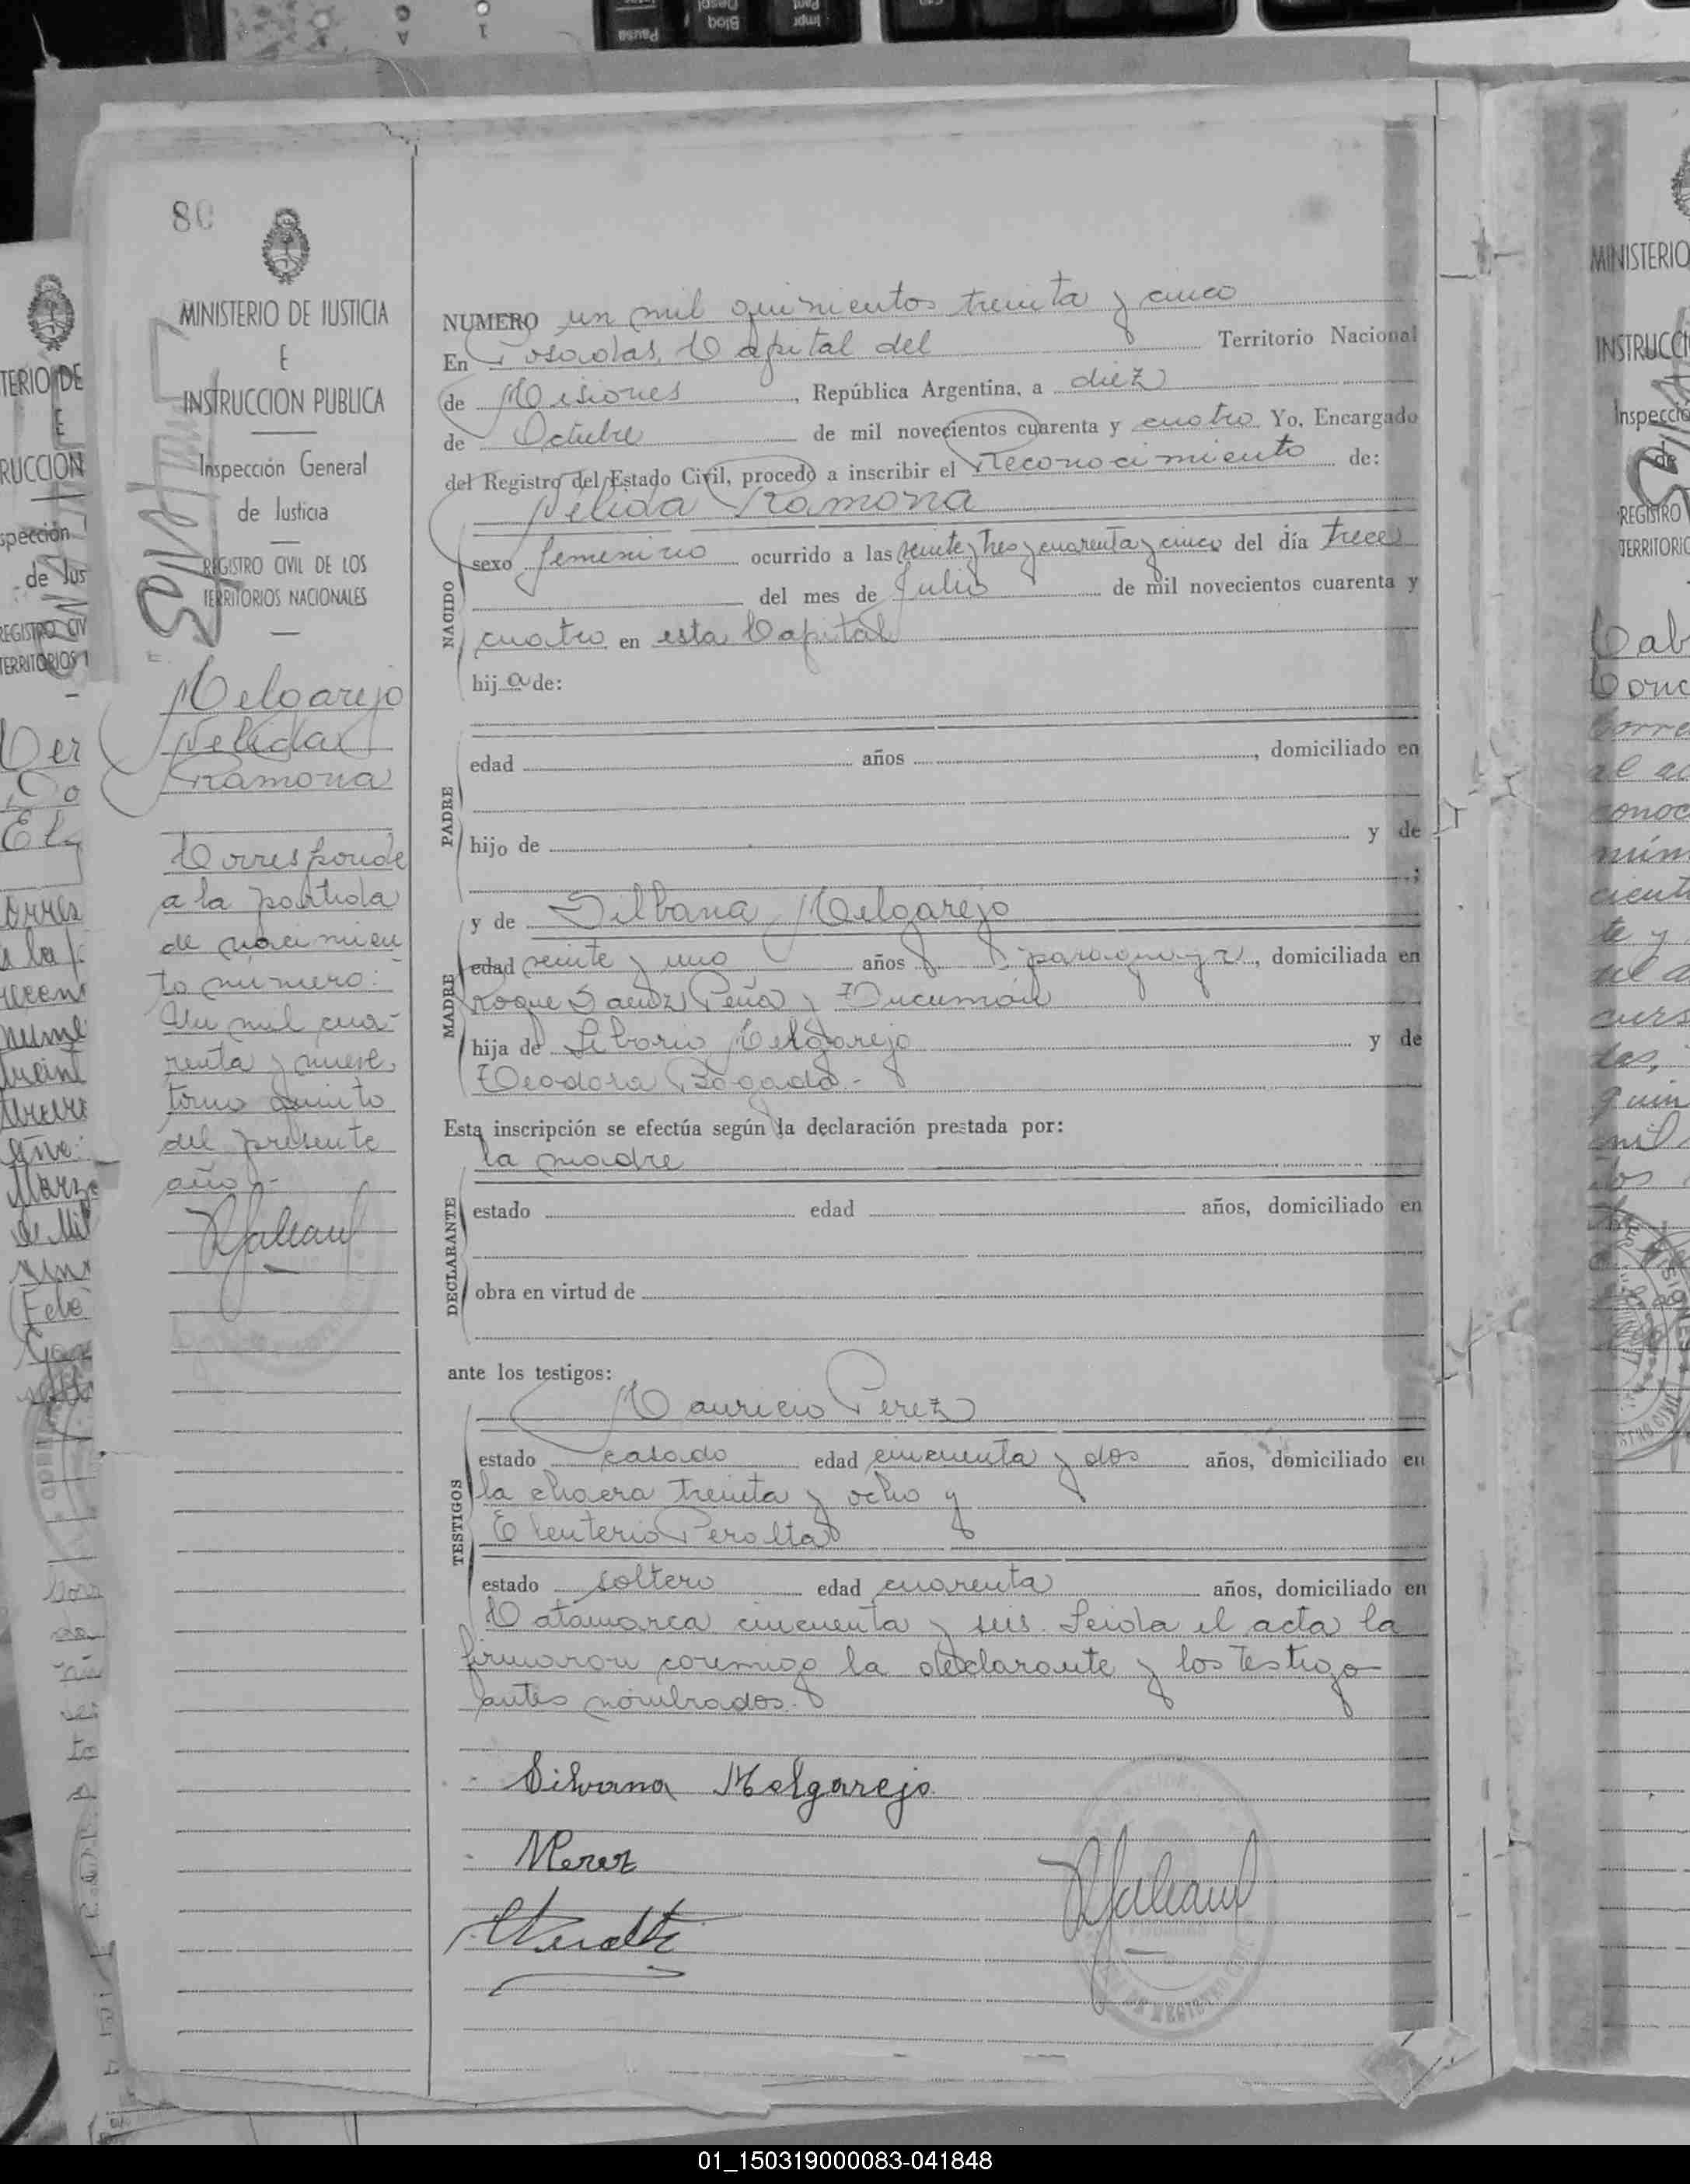 80
MINISTERIO DE JUSTICIA
E
INSTRUCCION PUBLICA
Inspección General
de Justicia
REGISTRO CIVIL DE LOS
TERRITORIOS NACIONALES
Melgarejo
Nélida
Ramona
Corresponde
a la partida
de nacimien
to número:
Un mil cua-
renta y nueve,
tomo quinto
del presente
año.-
NUMERO un mil quinientos treinta y cinco
En Posadas, Capital del Territorio Nacional
de Misiones, República Argentina, a diez
de Octubre de mil novecientos cuarenta y cuatro Yo, Encargado
del Registro del Estado Civil, procedo a inscribir el Reconocimiento de:
Nélida Ramona
NACIDO
sexo femenino ocurrido a las veinte y tres y cuarenta y cinco del día trece
del mes de Julio de mil novecientos cuarenta y
cuatro en esta Capital
hija de:
PADRE
edad años , domiciliado en
hijo de y de
;
MADRE
y de Silbana Melgarejo
edad veinte y uno años paraguaya, domiciliada en
Roque Saenz Peña y Tucumán
hija de Liborio Melgarejo y de
Teodora Bogado.-
Esta inscripción se efectúa según la declaración prestada por:
la madre
DECLARANTE
estado edad años, domiciliado en
obra en virtud de
ante los testigos:
TESTIGOS
Mauricio Perez
estado casado edad cincuenta y dos años, domiciliado en
la chacra treinta y ocho y
Eleuterio Peralta
estado soltero edad cuarenta años, domiciliado en
Catamarca cincuenta y seis. Leida el acta la
firmaron conmigo la declarante y los testigo
antes nombrados.
Silvana Melgarejo
MPerez
EPeralta
01_150319000083-041848